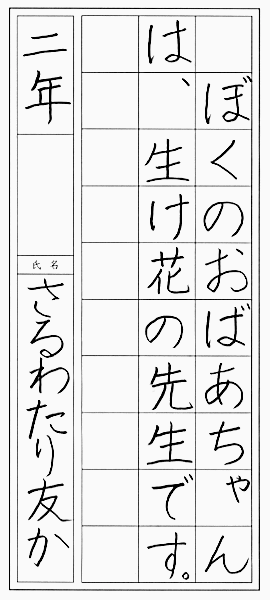 ぼくのおばあちゃん
は、生け花の先生です。
二年
氏名
さるわたり友か